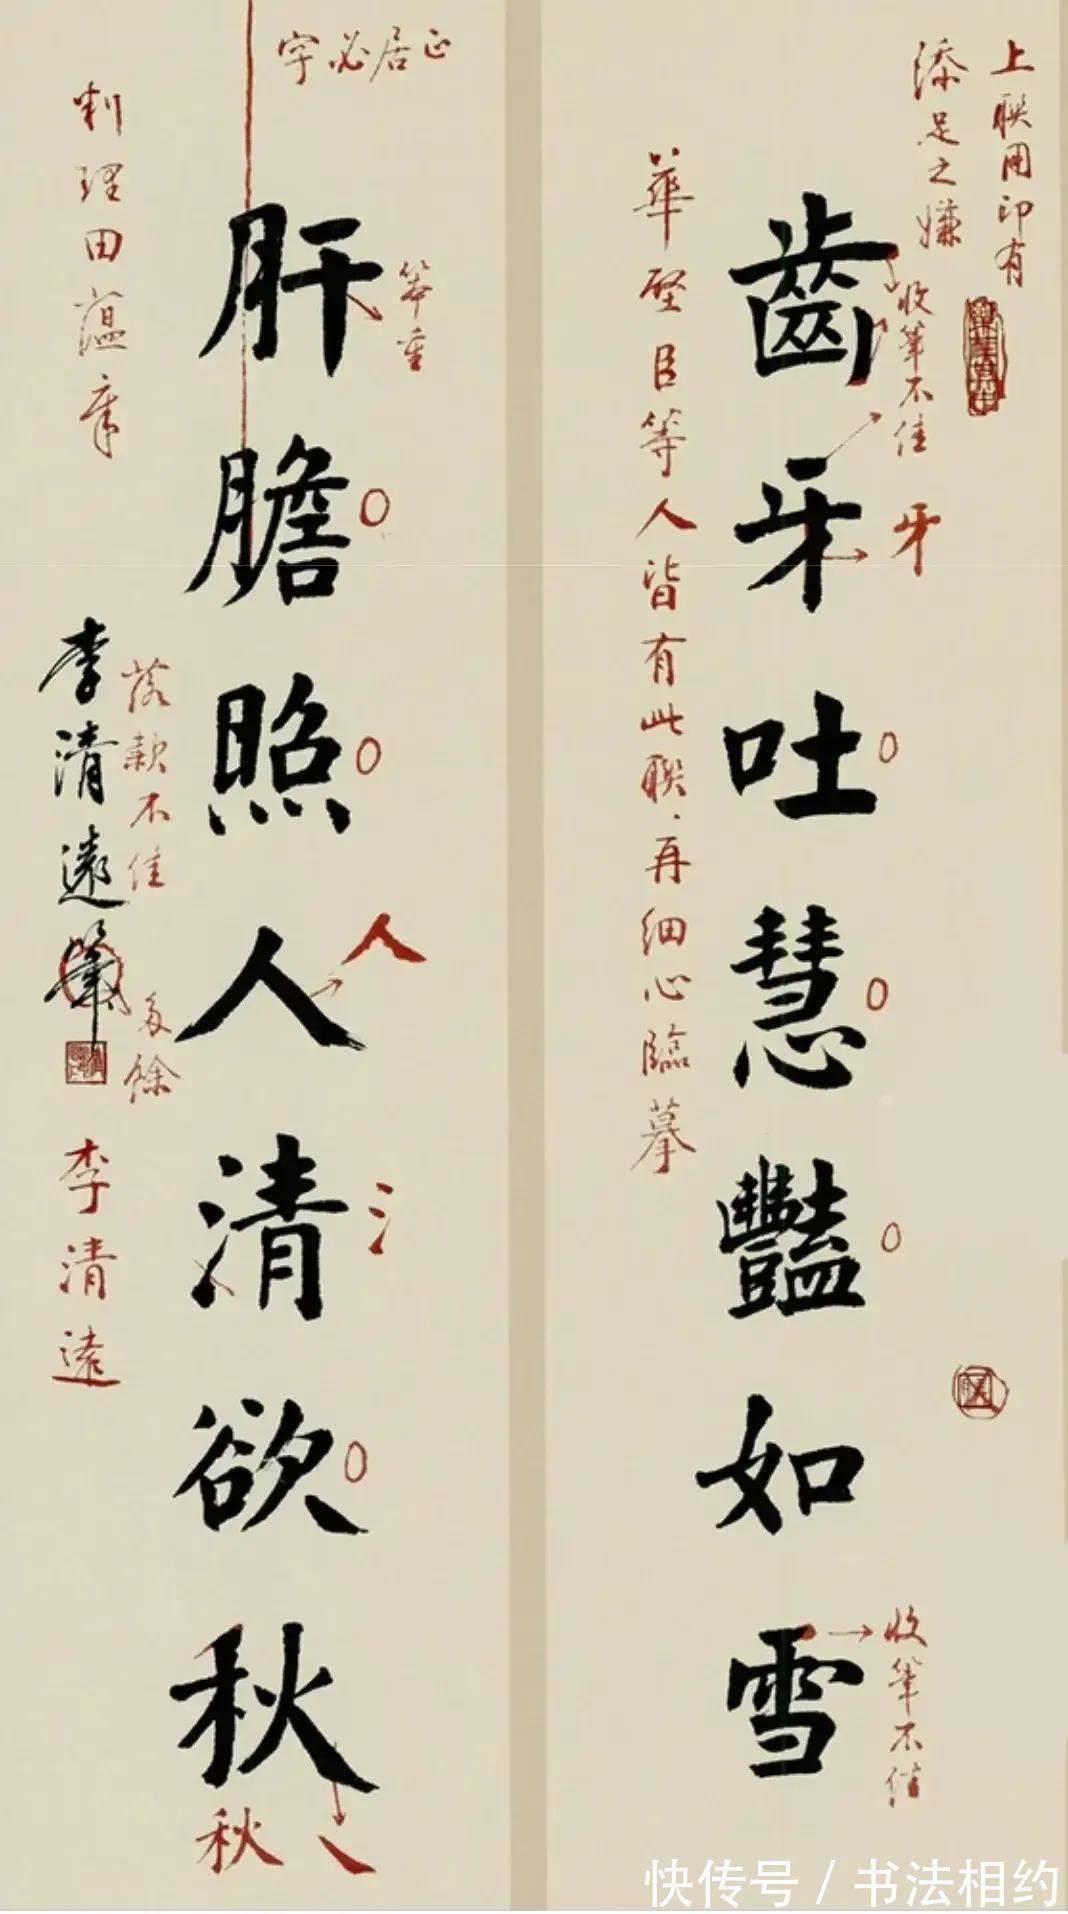 上聯用印有
添足之嫌
收筆不佳
牙
收筆不佳
齒牙吐慧豔如雪
華堅臣等人皆有此聯、再細心臨摹
字必居正
筆重
人
肝膽照人清欲秋
秋
落款不佳
多餘
李清遠筆
李清遠
判理田蕴章
快传号 / 书法相约